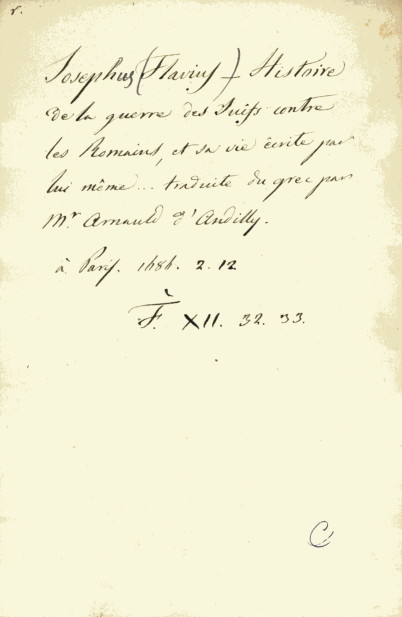 r.
Josephus (Flavius) Histoire
de la guerre des Juifs contre
les Romains, et sa vie écrite par
lui même... traduite du grec par
Mr. Arnauld d'Andilly.
à Paris. 1686. 2. 12
F. XII. 32. 33.
C